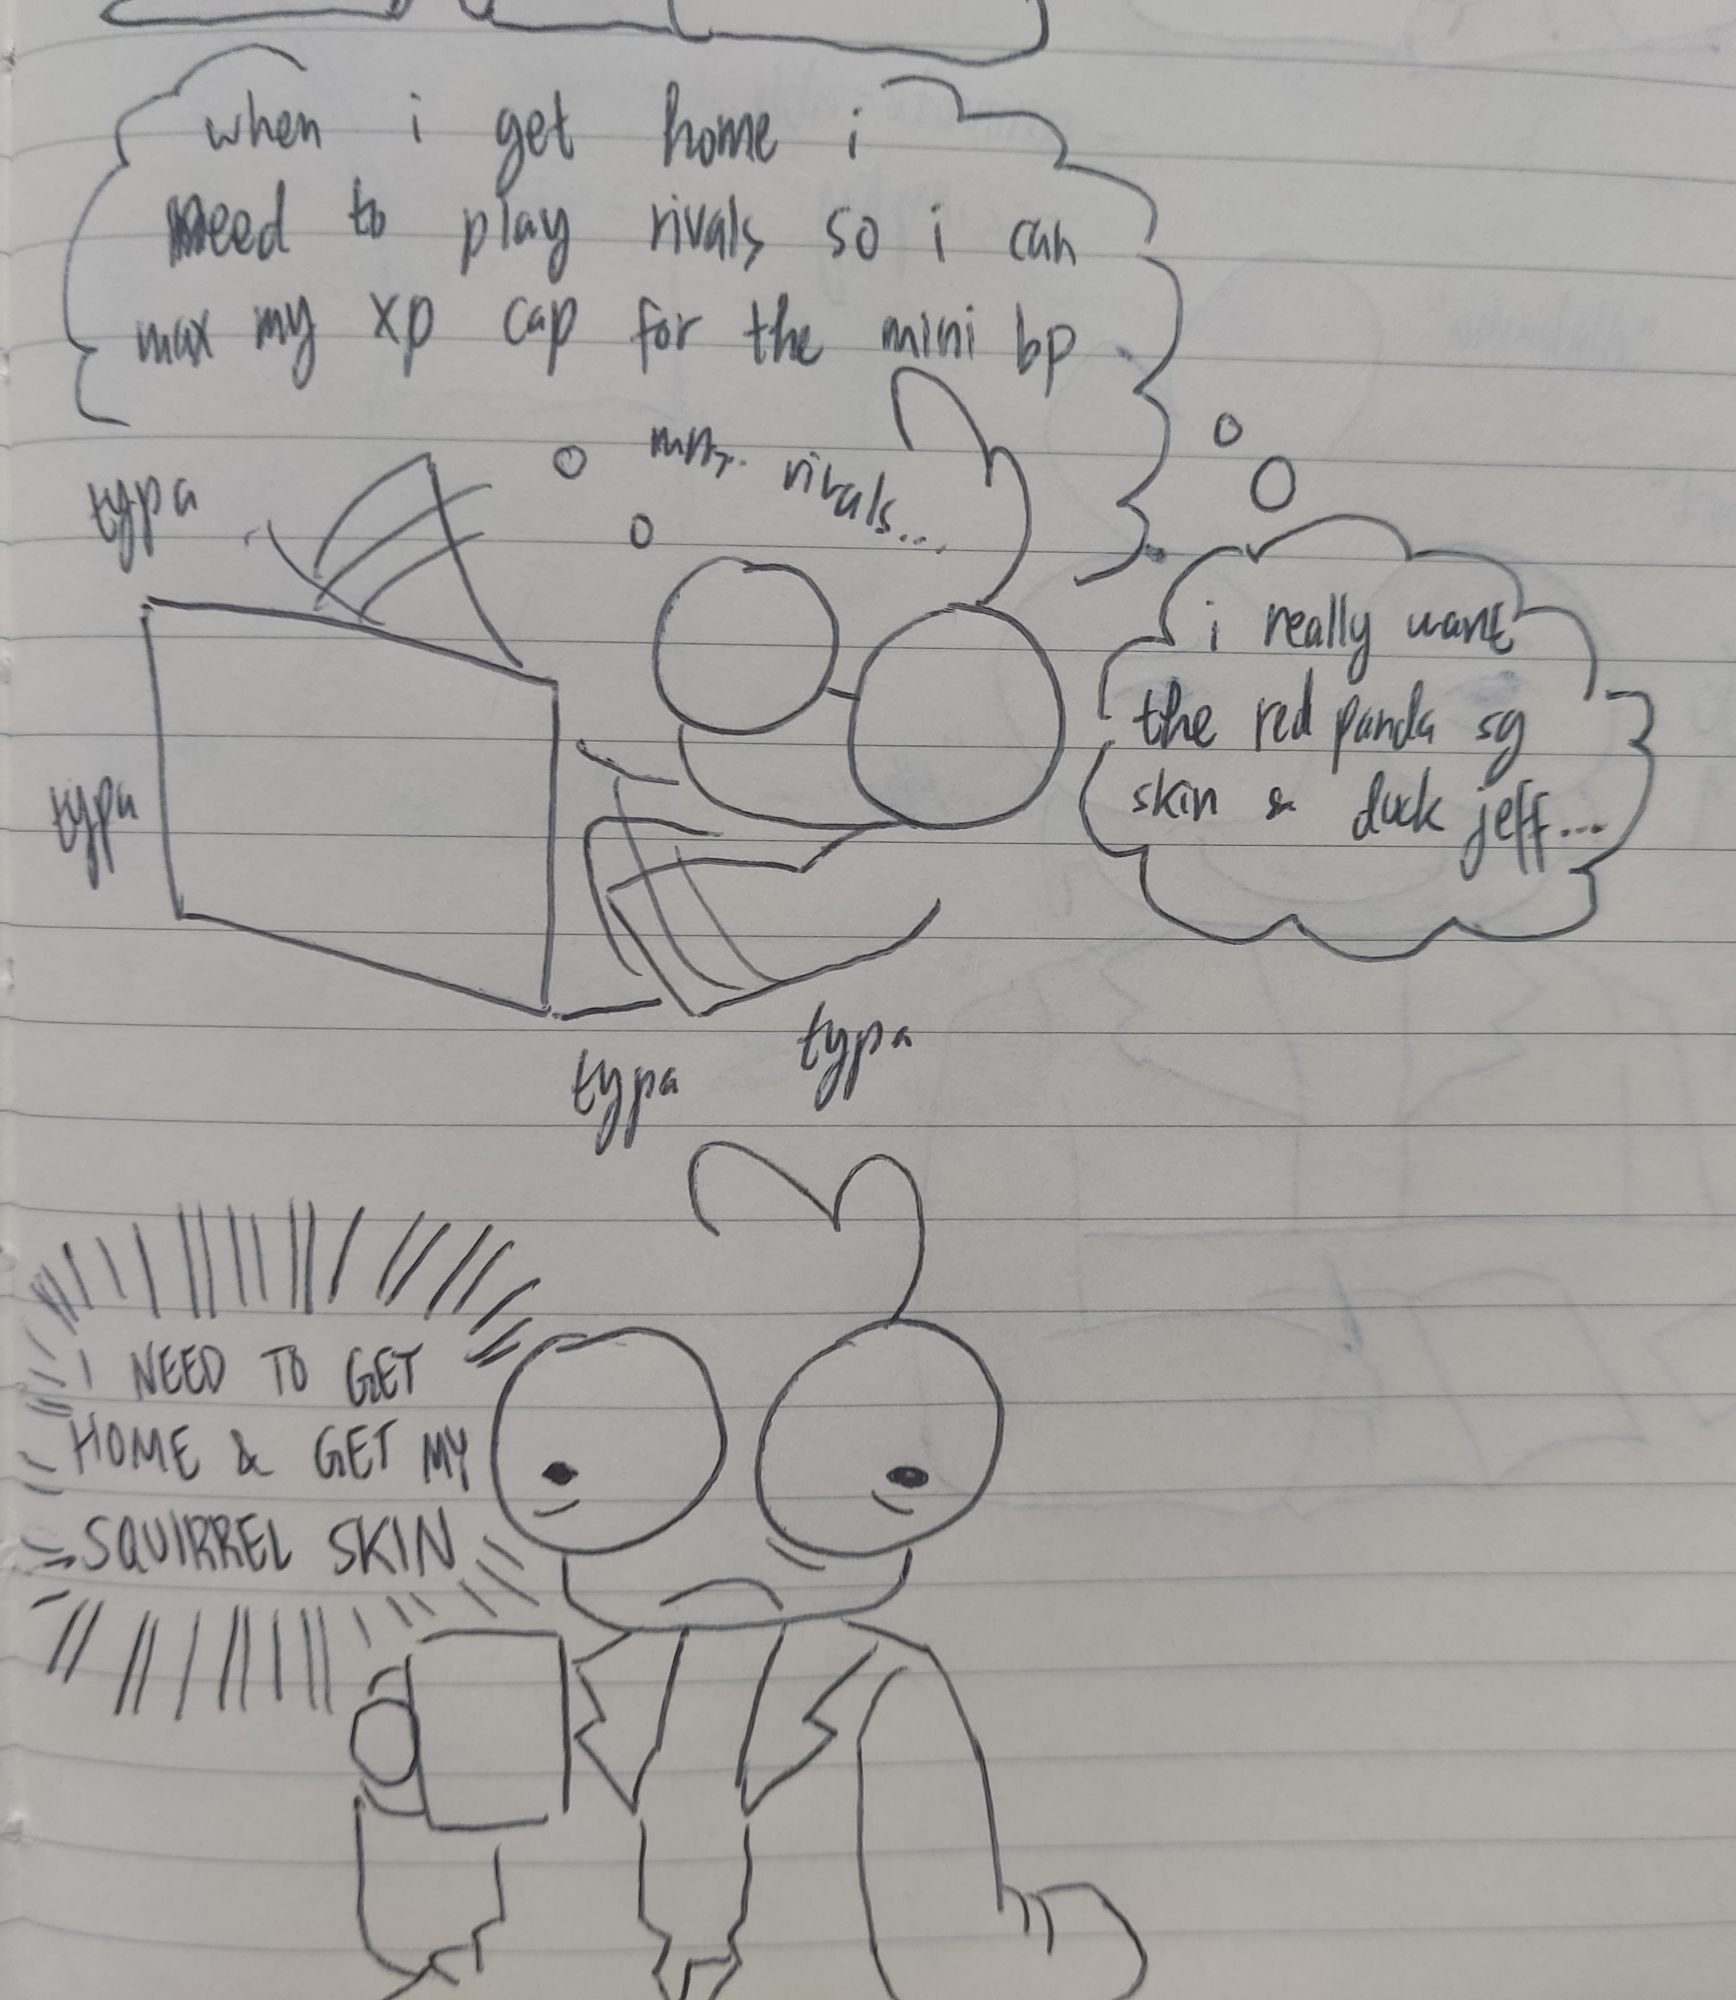 when i get home i
need to play rivals so i can
max my xp cap for the mini bp
rivals...
typa
typa
i really want
the red panda sg
skin & duck jeff...
typa
typa
I NEED TO GET
HOME & GET MY
SQUIRREL SKIN